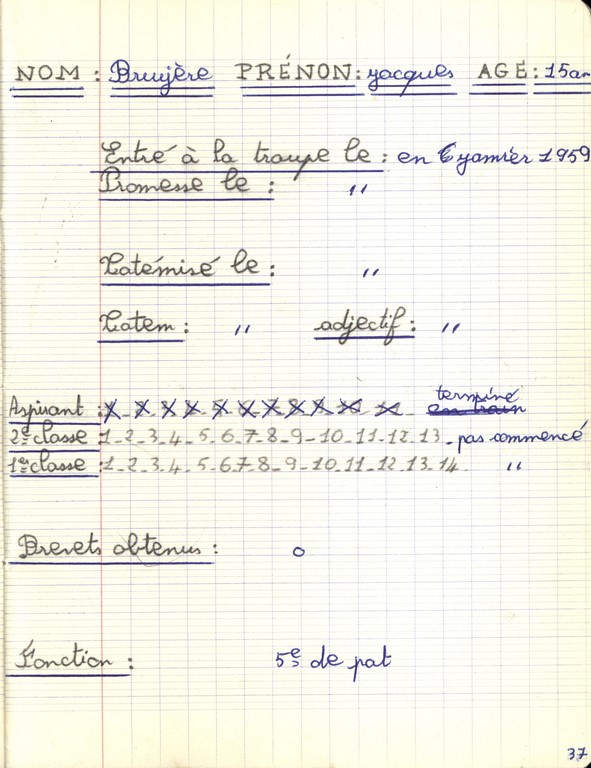 NOM : Bruyère PRÉNON: yacques AGE: 15an
Entré à la troupe le : en 6 yanvier 1959
Promesse le : "
Totémisé le : "
Totem : " adjectif : "
terminé
Aspirant : X - X - X - X - X - X - X - X - X - X - X en train
2e classe : 1-2-3-4-5-6-7-8-9-10-11-12-13- pas commencé
1re classe : 1-2-3-4-5-6-7-8-9-10-11-12-13-14 "
Brevets obtenus : 0
Fonction : 5e de pat
37